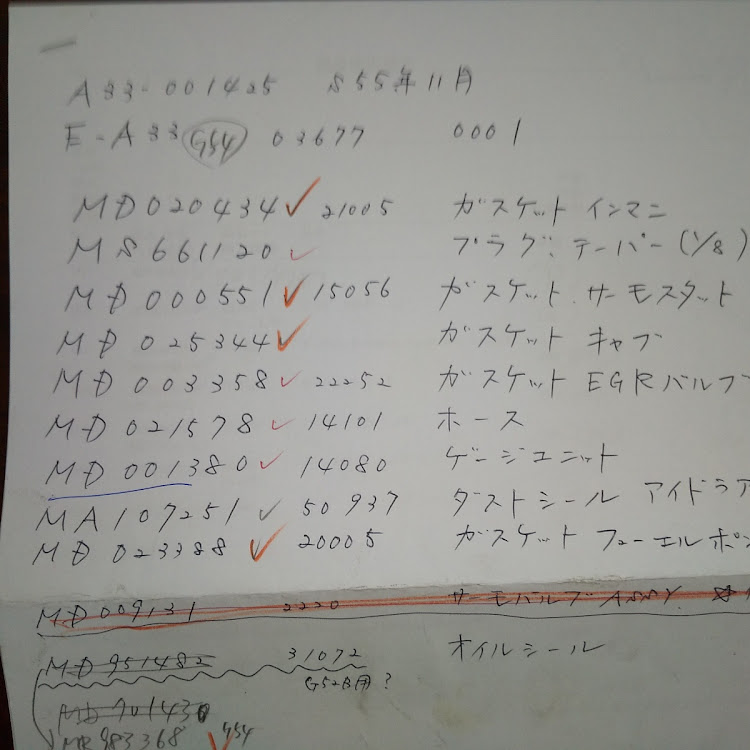 A33-001425 S55年11月
E-A33 G54 03677 0001
MD020434 21005 ガスケット インマニ
MS661120 プラグ、テーパー(1/8)
MD000551 15056 ガスケット サーモスタット
MD025344 ガスケット キャブ
MD003358 22252 ガスケット EGRバルブ
MD021578 14101 ホース
MD001380 14080 ゲージユニット
MA107251 50937 ダストシール アイドラア
MD023388 20005 ガスケット フューエルポン
MD009131 2220 サーモバルブ ASSY
MD951482 31072 オイルシール
G52B用?
MD701430
983368 G54